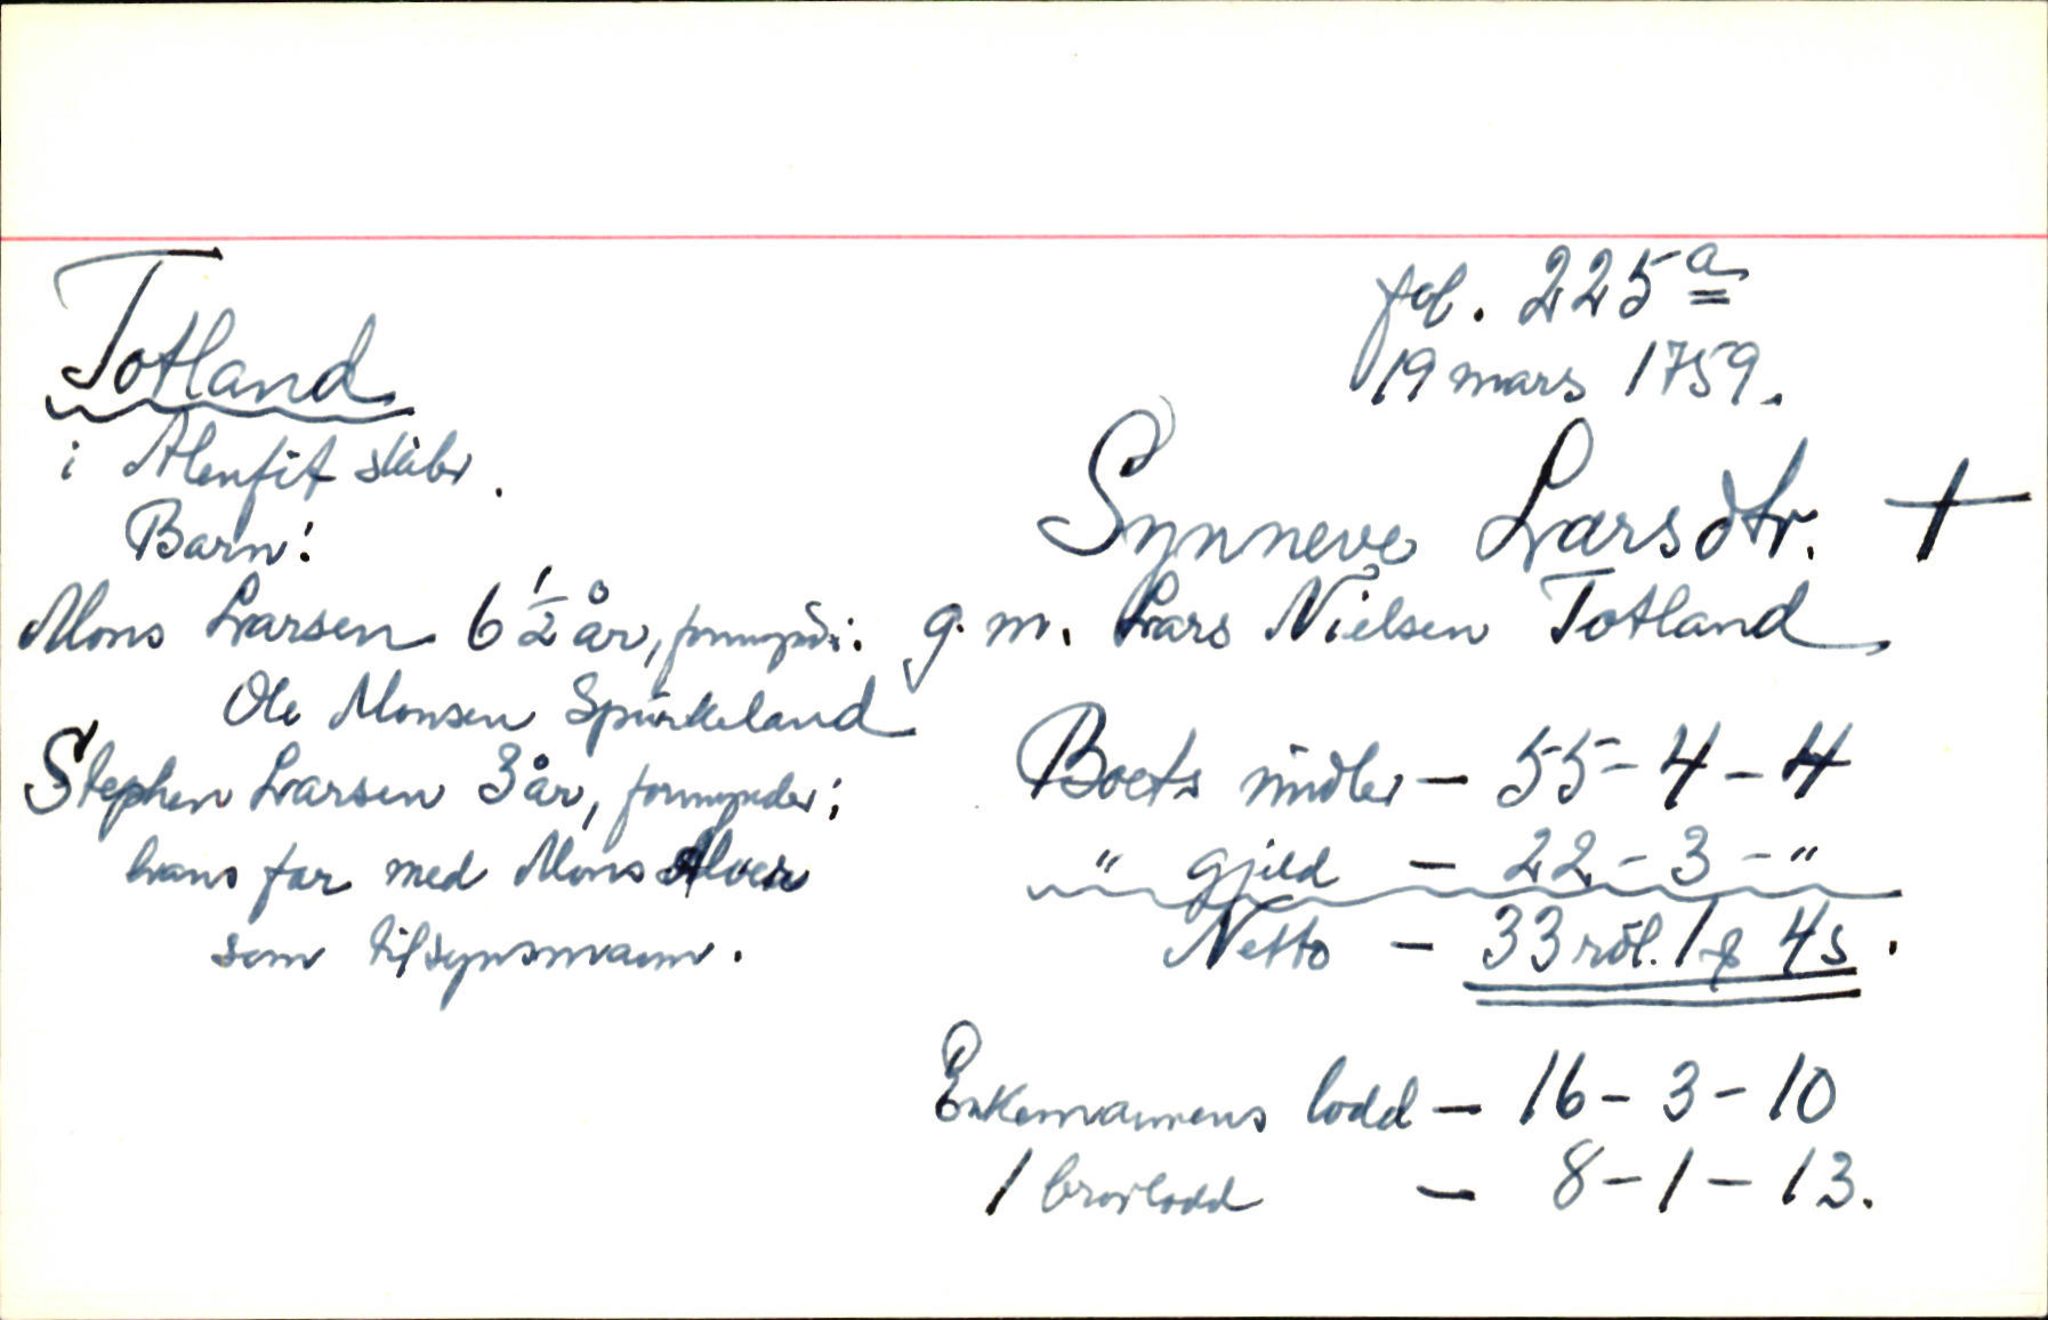 fol. 225a
19 mars 1759.
Totland
i Alenfit skibr.
Synneve Larsdtr. +
g. m. Lars Nielsen Totland
Barn:
Mons Larsen 6 1/2 år, formynd.:
Ole Monsen Spurkeland
Stephen Larsen 3 år, formynder;
hans far med Mons Alver
som tilsynsmann.
Boets midler - 55 - 4 - 4
" gjeld - 22 - 3 - "
Netto - 33 rdl. 1 ƒ 4 s.
Enkemannens lodd - 16 - 3 - 10
1 brorlodd - 8 - 1 - 13.